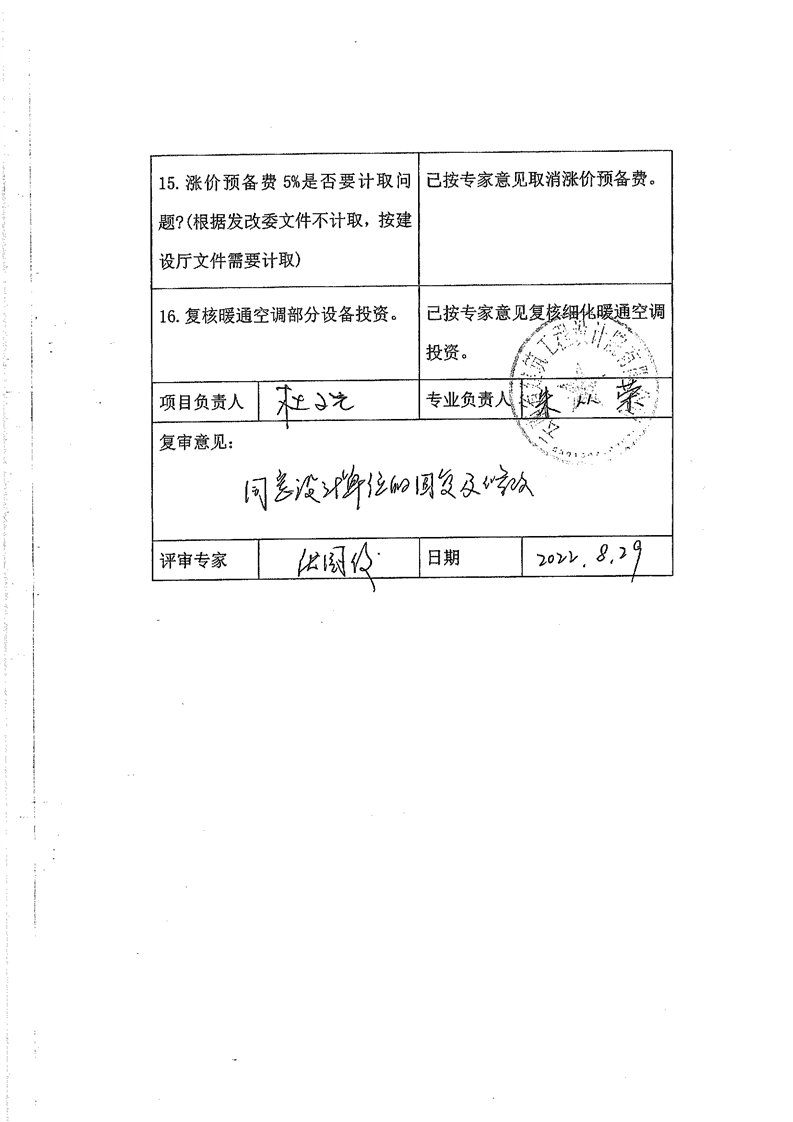 15. 涨价预备费 5%是否要计取问
题?(根据发改委文件不计取，按建
设厅文件需要计取)
已按专家意见取消涨价预备费。
16. 复核暖通空调部分设备投资。
已按专家意见复核细化暖通空调
投资。
项目负责人
专业负责人 朱 荣
复审意见：
同意设计单位的回复及修改
评审专家
日期 2022.8.29
筑工程设计院有限